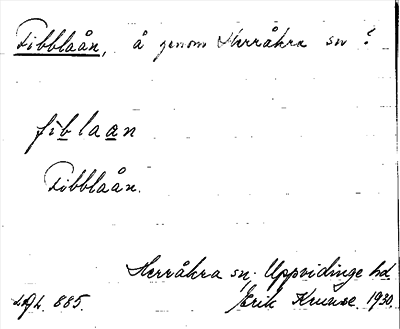 Fibblaån, å genom Herråkra sn ?
fiblaan
Fibblaån.
Herråkra sn, Uppvidinge hd
885. Erik Kruuse 1930.